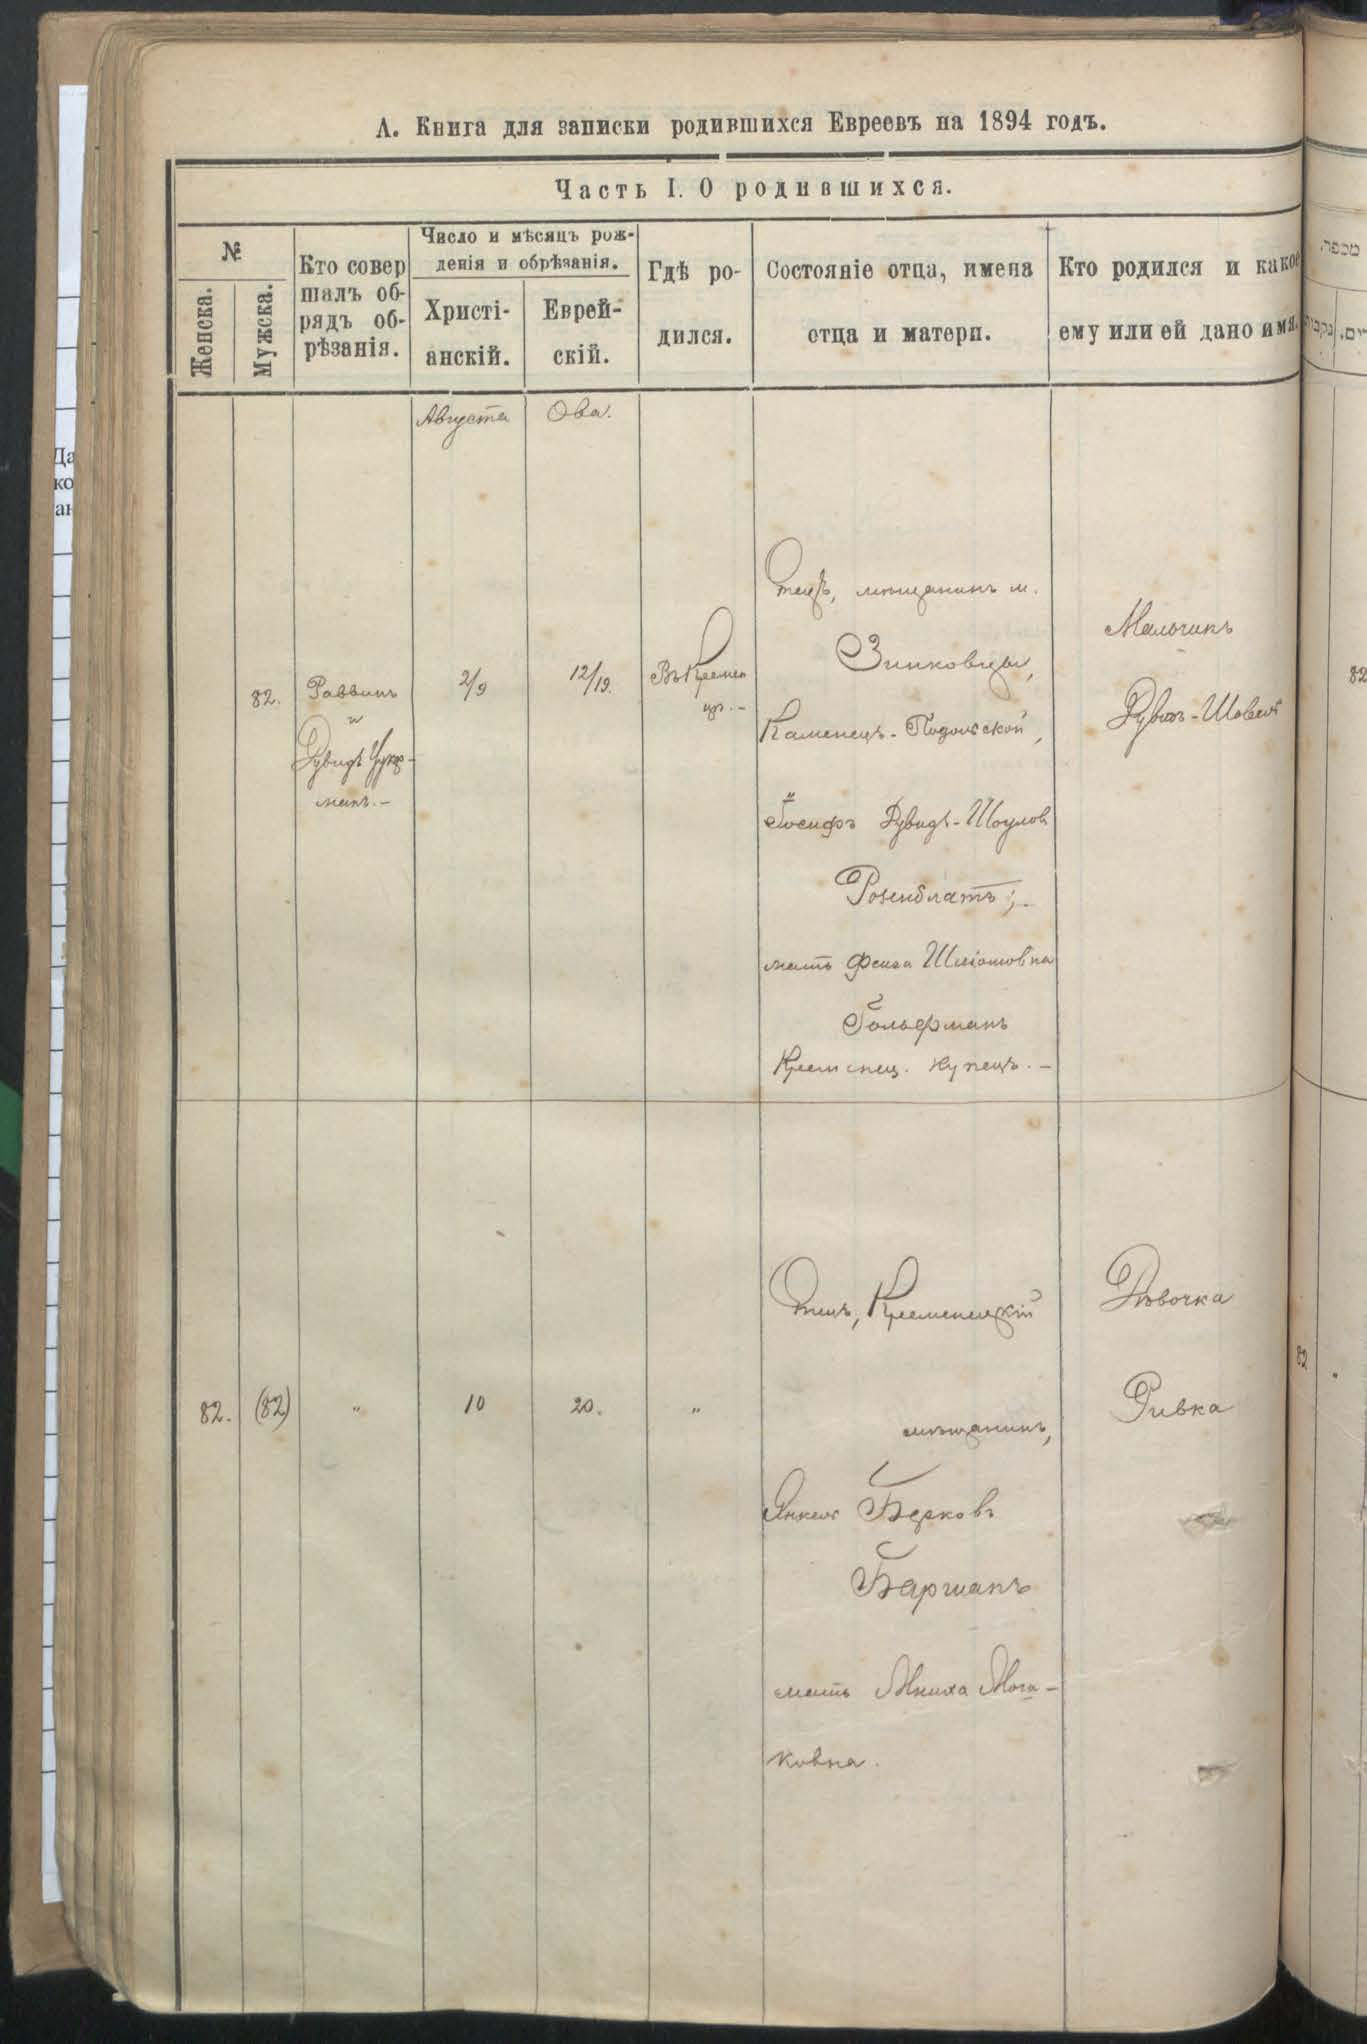 А. Книга для записки родившихся Евреевъ на 1894 годъ.
Часть I. О родившихся.
№
Женска.
Мужска.
Кто совер
шалъ об-
рядъ об-
рѣзанія.
Число и мѣсяцъ рож-
денія и обрѣзанія.
Христі-
анскій.
Еврей-
скій.
Гдѣ ро-
дился.
Состояніе отца, имена
отца и матери.
Кто родился и какое
ему или ей дано имя.
Августа
Ова.
82.
Раввинъ
и
2/9
12/19.
Въ Кремен
цѣ.-
Отецъ, мѣщанинъ м.
Зинковцы,
Каменецъ-Подольской,
Іосифъ
Розенблатъ;-
мать Фейга
Гольдрманъ
Кременец. купецъ.-
Мальчикъ
82.
(82)
"
10
20.
"
Отецъ, Кременецкій
мѣщанинъ,
Янкель Берковъ
мать
ковна.
Дѣвочка
Ривка
82
82